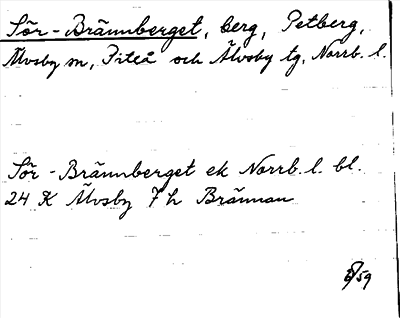 Sör-Brännberget, berg, Petberg,
Älvsby sn, Piteå och Älvsby tg, Norrb. l.
Sör-Brännberget ek Norrb. l. bl.
24 K Älvsby 7 h Brännan